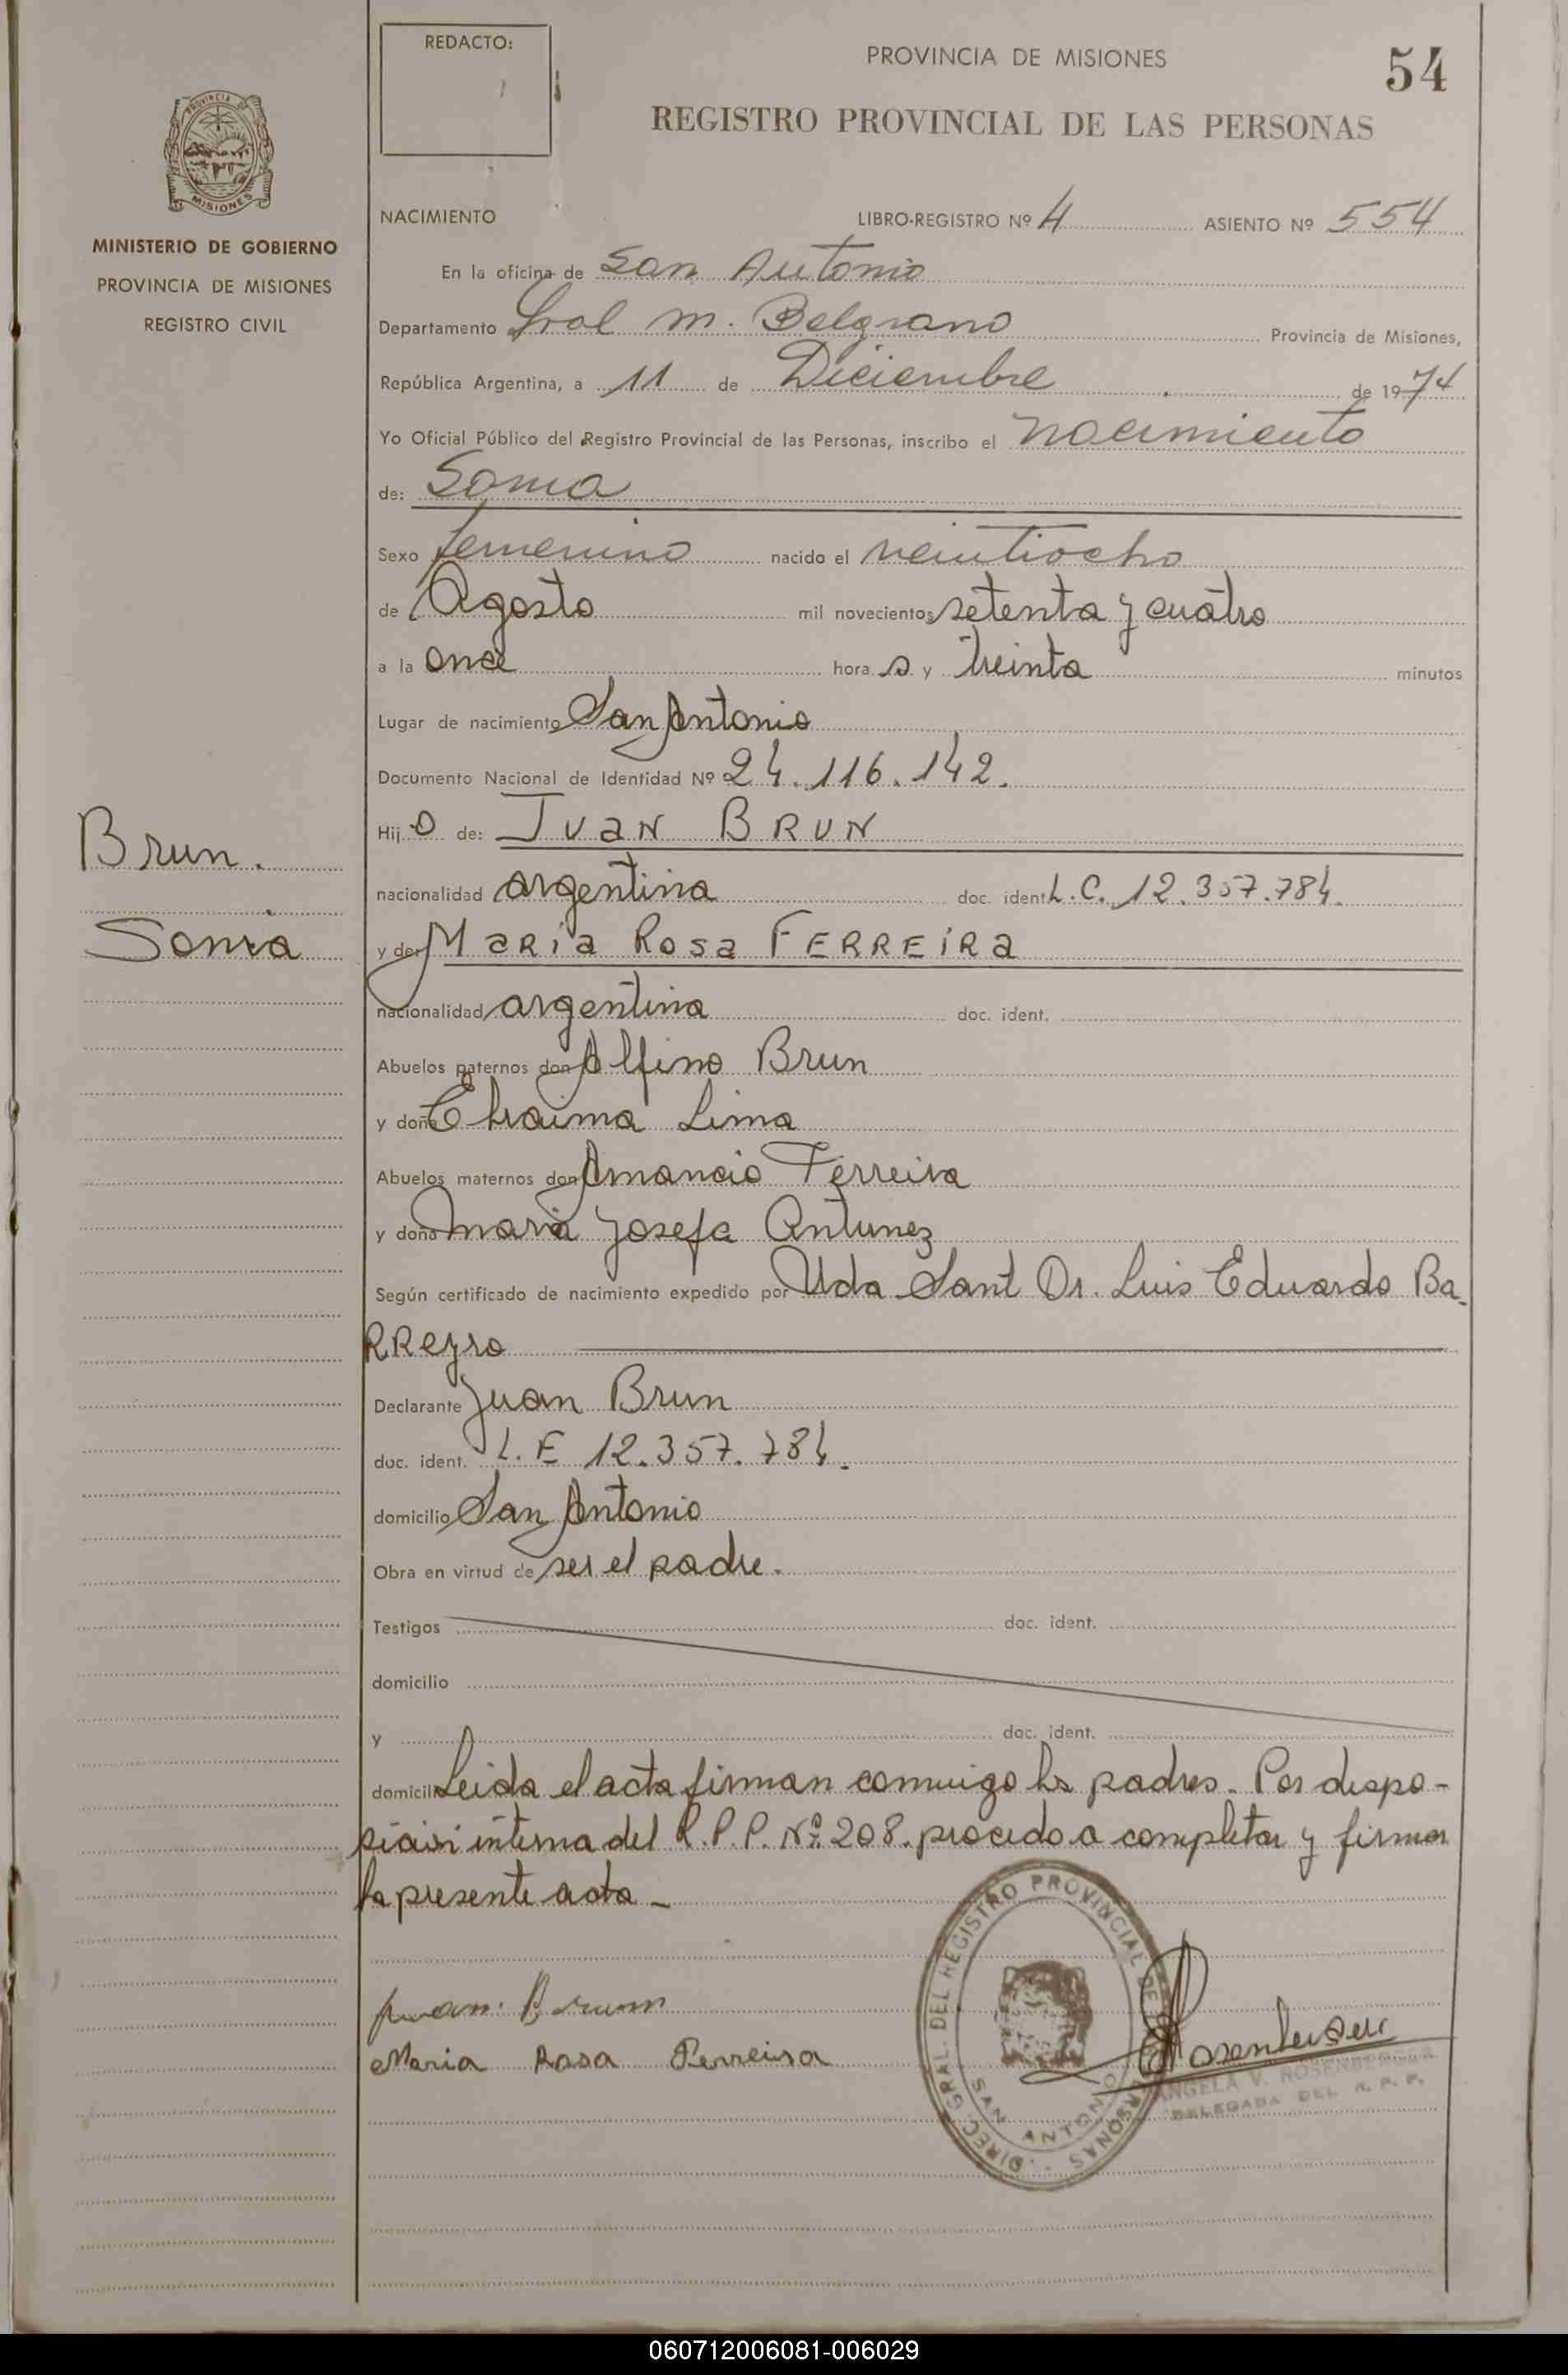 REDACTO:
PROVINCIA DE MISIONES
54
REGISTRO PROVINCIAL DE LAS PERSONAS
PROVINCIA DE
MISIONES
MINISTERIO DE GOBIERNO
PROVINCIA DE MISIONES
REGISTRO CIVIL
NACIMIENTO LIBRO-REGISTRO Nº 4 ASIENTO Nº 554
En la oficina de San Antonio
Departamento Gral M. Belgrano Provincia de Misiones,
República Argentina, a 11 de Diciembre de 1974
Yo Oficial Público del Registro Provincial de las Personas, inscribo el nacimiento
de: Sonia
Sexo femenino nacido el veintiocho
de Agosto mil novecientos setenta y cuatro
a la once hora s y treinta minutos
Lugar de nacimiento San Antonio
Documento Nacional de Identidad Nº 24.116.142.
Brun.
Sonia
Hij o de: JUAN BRUN
nacionalidad argentina doc. ident. L.C. 12.357.784.
y de: MaRia Rosa FERREiRa
nacionalidad argentina doc. ident.
Abuelos paternos don Alfino Brun
y doña Lima
Abuelos maternos don Amancio Ferreira
y doña Maria Josefa Antunez
Según certificado de nacimiento expedido por Uda Sant Dr. Luis Eduardo Ba-
RReyro
Declarante Juan Brun
doc. ident. L.E 12.357.784.
domicilio San Antonio
Obra en virtud de ser el padre.
Testigos doc. ident.
domicilio
y doc. ident.
domicili Leida el acta firman conmigo los padres. Por dispo-
sición interna del R.P.P. Nº 208. procedo a completar y firmar
la presente acta-
Juan Brunn
Maria Rosa Ferreira
DIREC. GRAL. DEL REGISTRO PROVINCIAL DE PERSONAS
SAN ANTONIO
ANGELA V. ROSENBERGER
DELEGADA DEL R. P. P.
060712006081-006029